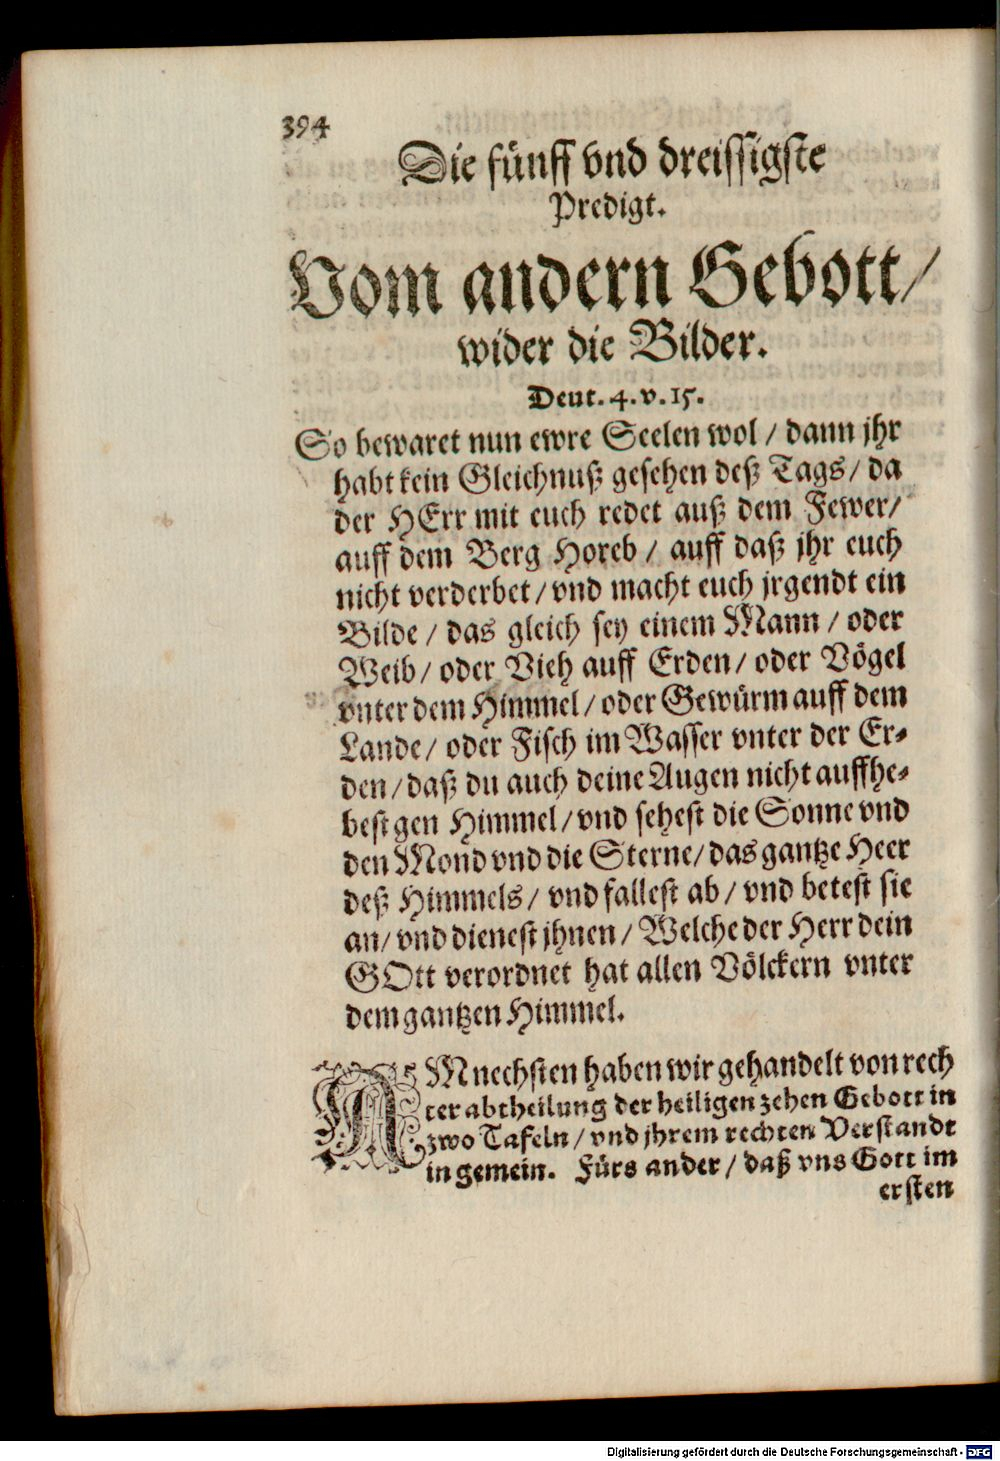 394
Die fünff vnd dreissigste
Predigt.
Vom andern Gebott/
wider die Bilder.
Deut. 4. v. 15.
So bewaret nun ewre Seelen wol / dann jhr
habt kein Gleichnuß gesehen deß Tags / da
der HErr mit euch redet auß dem Fewer/
auff dem Berg Horeb / auff daß jhr euch
nicht verderbet / vnd macht euch jrgendt ein
Bilde / das gleich sey einem Mann / oder
Weib / oder Vieh auff Erden / oder Vögel
vnter dem Himmel / oder Gewürm auff dem
Lande / oder Fisch im Wasser vnter der Er-
den / daß du auch deine Augen nicht auffhe-
best gen Himmel / vnd sehest die Sonne vnd
den Mond vnd die Sterne / das gantze Heer
deß Himmels / vnd fallest ab / vnd betest sie
an / vnd dienest jhnen / Welche der Herr dein
GOtt verordnet hat allen Völckern vnter
dem gantzen Himmel.
AM nechsten haben wir gehandelt von rech
ter abtheilung der heiligen zehen Gebott in
zwo Tafeln / vnd jhrem rechten Verstandt
in gemein. Fürs ander / daß vns Gott im
ersten
Digitalisierung gefördert durch die Deutsche Forschungsgemeinschaft - DFG